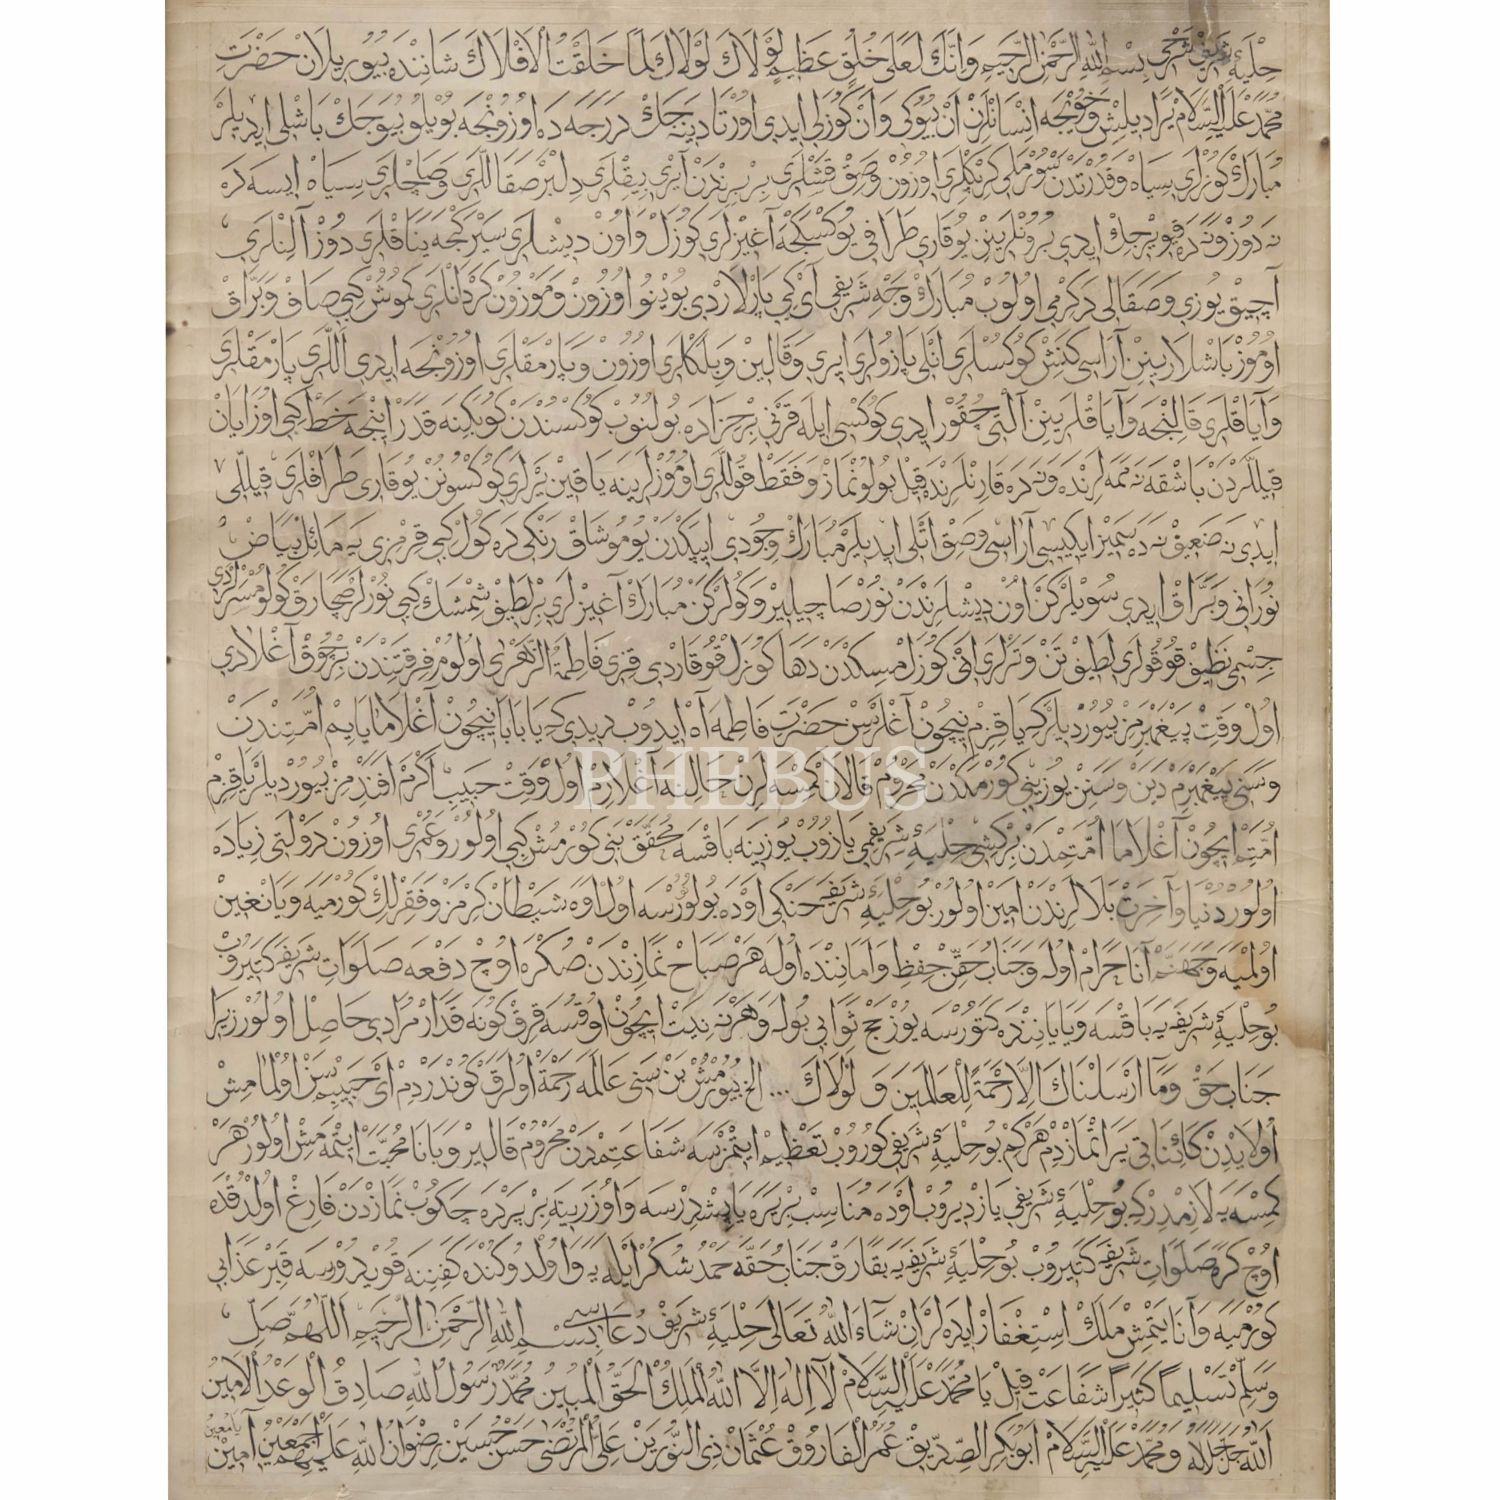 حِلْيَهٔ شَرِيفْ شَرْحِى بِسْمِ اللهِ الرَّحْمٰنِ الرَّحِيمِ وَاِنَّكَ لَعَلٰى خُلُقٍ عَظِيمٍ لَوْلَاكَ لَوْلَاكَ لَمَا خَلَقْتُ الْاَفْلَاكَ شَانِنْدَه بُيُورِيلَانْ حَضْرَتِ
مُحَمَّدْ عَلَيْهِ السَّلَامْ يَرَادِيلِشْ وَخُويُنْجَه اِنْسَانْلَرِنْ اَنْ بُيُوكِى وَاَنْ كُوزَلِى اِيدِى اُورْتَادِينَه جَكْ دَرَجَه دَه اُوزُونْجَه بُويْلُو بُيُوجَكْ بَاشْلِى اِيدِيلَرْ
مُبَارَكْ كُوزْلَرِى سِيَاهْ وَقُدْرَتْدَنْ سُورْمَلِى كِرْپِكْلَرِى اُوزُونْ وَصِقْ قَاشْلَرِى بِرْبِرِنْدَنْ آيْرِى بِيِقْلَرِى دِلْبَرْ صَقَالْلَرِى وَصَاچْلَرِى سِيَاهْ اِيسَه دَه
نَه دُوزْ وَنَه دَه قِيوِيرْجِكْ اِيدِى بُرُونْلَرِينِنْ يُوقَارِى طَرَافِى يُوكْسَكْجَه آغِيزْلَرِى كُوزَلْ وَاُونْ دِيشْلَرِى سَيْرَكْجَه يَنَاقْلَرِى دُوزْ آلِنْلَرِى
آچِيقْ يُوزِى وَصَقَالِى دَكِرْمِى اُولُوبْ مُبَارَكْ وَجْهِ شَرِيفِى آىْ كِبِى پَارْلَارْدِى بُويْنُو اُوزُونْ وَمَوْزُونْ كَرْدَانْلَرِى كُمُوشْ كِبِى صَافْ وَبَرَّاقْ
اُومُوزْ بَاشْلَارِينِنْ آرَاسِى كَنِشْ كُوكُسْلَرِى اَتْلِى پَازُولَرِى اِيرِى وَقَالِينْ وَبِلَكْلَرِى اُوزُونْ وَپَارْمَقْلَرِى اُوزُونْجَه اِيدِى اَللَّرِى پَارْمَقْلَرِى
وَآيَاقْلَرِى قَالِنْجَه وَآيَاقْلَرِينِنْ آلْتِى چُقُورْ اِيدِى كُوكْسِى اِيلَه قَرْنِى بِرْ حِزَادَه بُولُنُوبْ كُوكْسُنْدَنْ كُوبَكِنَه قَدَرْ اِينْجَه خَطْ كِبِى اُوزَايَانْ
قِيلْلَرْدَنْ بَاشْقَه نَه مَمَه لَرِنْدَه وَنَه دَه قَارِنْلَرِنْدَه قِيلْ بُولُونْمَازْ وَفَقَطْ قُولْلَرِى اُومُوزْلَرِينَه يَاقِينْ يَرْلَرِى كُوكْسُونُنْ يُوقَارِى طَرَافْلَرِى قِيلْلِى
اِيدِى نَه ضَعِيفْ نَه دَه سَمِيزْ اِيكِيسِى آرَاسِى وَصِقْ اَتْلِى اِيدِيلَرْ مُبَارَكْ وُجُودِى اِيپَكْدَنْ يُومُوشَاقْ رَنْكِى دَه كُولْ كِبِى قِرْمِزِى يَه مَائِلْ بِيَاضْ
نُورَانِى وَبَرَّاقْ اِيدِى سُويْلَرْكَنْ اُونْ دِيشْلَرِنْدَنْ نُورْ صَاچِيلِيرْ وَكُولَرْكَنْ مُبَارَكْ آغِيزْلَرِى بِرْ لَطِيفْ شِمْشَكْ كِبِى نُورْلَرْ صَاچَارَقْ كُولُومْسَرْلَرْدِى
جِسْمِى نَظِيفْ قُوقُولَرِى لَطِيفْ تَنْ وَتَرْلَرِى اَنْ كُوزَلْ مِسْكْدَنْ دَهَا كُوزَلْ قُوقَارْدِى قِزِى فَاطِمَةُ الزَّهْرٰى اُولُومْ فِرْقَتِنْدَنْ بِرْ چُوقْ آغْلَادِى
اُولْ وَقِتْ پَيْغَمْبَرِمِزْ بُيُورْدِيلَرْ كِه يَا قِزِمْ نِيچُونْ آغْلَرْسِنْ حَضْرَتِ فَاطِمَه آهْ اِيدُوبْ دِيدِى كِه يَا بَابَا نِيچُونْ آغْلَامَايَايِمْ اُمَّتِنْدَنْ
وَسَنِى پَيْغَمْبَرِمْ دِيَنْ وَسَنِنْ يُوزِينِى كُورْمَكْدَنْ مَحْرُومْ قَالَانْ كِمْسَه لَرِنْ حَالِنَه آغْلَارِمْ اُولْ وَقِتْ حَبِيبِ اَكْرَمْ اَفَنْدِمِزْ بُيُورْدِيلَرْ يَا قِزِمْ
اُمَّتِمْ اِيچُونْ آغْلَامَا اُمَّتِمْدَنْ بِرْ كِشِى حِلْيَهٔ شَرِيفِمِى يَازُوبْ يُوزِينَه بَاقْسَه مُحَقَّقْ بَنِى كُورْمُشْ كِبِى اُولُورْ وَعُمْرِى اُوزُونْ دَوْلَتِى زِيَادَه
اُولُورْ دُنْيَا وَآخِرَتْ بَلَالَرِنْدَنْ اَمِينْ اُولُورْ بُو حِلْيَهٔ شَرِيفَه حَنْكِى اَوْدَه بُولُونُورْسَه اُولْ اَوَه شَيْطَانْ كِرْمَزْ وَفَقِرْلِكْ كُورْمَيَه وَيَانْغِينْ
اُولْمِيَه وَجَهَنَّمْ آنَا حَرَامْ اُولَه وَجَنَابِ حَقِّنْ حِفْظِ وَاَمَانِنْدَه اُولَه هَرْ صَبَاحْ نَمَازِنْدَنْ صُكْرَه اُوچْ دَفْعَه صَلَوَاتِ شَرِيفَه كَتِيرُوبْ
بُو حِلْيَهٔ شَرِيفَه يَه بَاقْسَه وَيَا يَانِنْدَه كَتُورْسَه يُوزْ حَجْ ثَوَابِى بُولَه وَهَرْ نَه نِيَّتْ اِيچُونْ اُوقُسَه قِرْقْ كُونَه قَدَارْ مُرَادِى حَاصِلْ اُولُورْ زِيرَا
جَنَابِ حَقْ وَمَا اَرْسَلْنَاكَ اِلَّا رَحْمَةً لِلْعَالَمِينَ وَ لَوْلَاكَ ... الخ بُيُورْمُشْ بَنْ سَنِى عَالَمَه رَحْمَةْ اُولَرَقْ كُونْدَرْدِمْ اَىْ حَبِيبِمْ سَنْ اُولْمَامِشْ
اُولَايْدِنْ كَائِنَاتِى يَرَاتْمَازْدِمْ هَرْ كِمْ بُو حِلْيَهٔ شَرِيفِى كُورُوبْ تَعْظِيمْ اِيتْمَزْسَه شَفَاعَتِمْدَنْ مَحْرُومْ قَالِيرْ وَبَانَا مُحَبَّتْ اِيتْمَه مِشْ اُولُورْ هَرْ
كِمْسَه يَه لَازِمْدِرْ كِه بُو حِلْيَهٔ شَرِيفِى يَازْدِيرُوبْ اَوْدَه مُنَاسِبْ بِرْ يَرَه يَاپِشْدِرْسَه وَاُوزَرِينَه بِرْ پَرْدَه چَكُوبْ نَمَازْدَنْ فَارِغْ اُولْدُقْدَه
اُوچْ كَرَه صَلَوَاتِ شَرِيفَه كَتِيرُوبْ بُو حِلْيَهٔ شَرِيفَه يَه بَقَارَقْ جَنَابِ حَقَّه حَمْدُ شُكُرْ اَيْلَه يَه وَاُولْدُوكُنْدَه كَفِنِنَه قُويْدُورْسَه قَبِرْ عَذَابِى
كُورْمَيَه وَآنَا يَتْمِشْ مَلَكْ اِسْتِغْفَارْ اِيدَه لَرْ اِنْ شَآءَ اللهُ تَعَالٰى حِلْيَهٔ شَرِيفْ دُعَاسِى بِسْمِ اللهِ الرَّحْمٰنِ الرَّحِيمِ اَللّٰهُمَّ صَلِّ
وَسَلِّمْ تَسْلِيمًا كَثِيرًا شَفَاعَتْ قِيلْ يَا مُحَمَّدْ عَلَيْهِ السَّلَامْ لَا اِلٰهَ اِلَّا اللهُ الْمَلِكُ الْحَقُّ الْمُبِينُ مُحَمَّدٌ رَسُولُ اللهِ صَادِقُ الْوَعْدِ الْاَمِينُ
اَللهُ جَلَّ جَلَالُهُ وَمُحَمَّدْ عَلَيْهِ السَّلَامْ اَبُو بَكِرِ الصِّدِّيقْ عُمَرُ الْفَارُوقْ عُثْمَانْ ذِى النُّورَيْنْ عَلِىُّ الْمُرْتَضٰى حَسَنْ حُسَيْنْ رِضْوَانُ اللهِ عَلَيْهِمْ اَجْمَعِينْ آمِينْ يَا مُعِينْ
PHEBUS